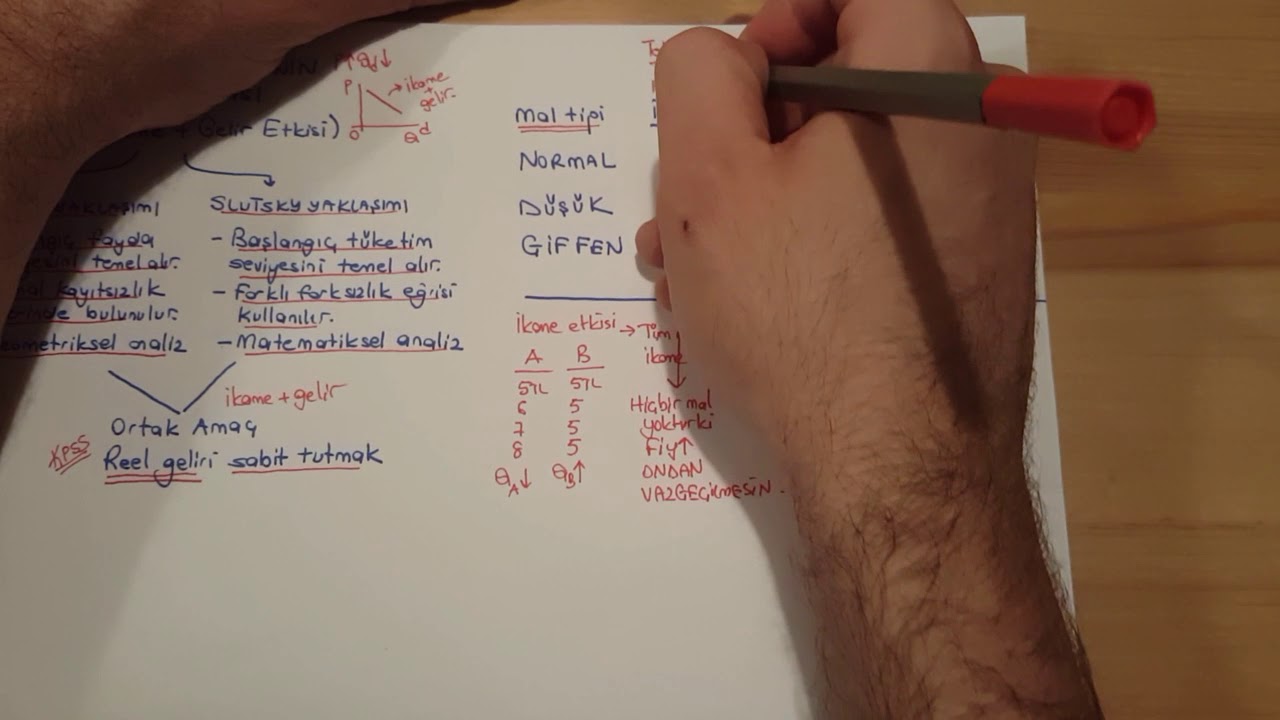 P↑ Qd↓
P
ikame
+
gelir
0
Qd
Gelir Etkisi)
YAKLAŞIMI
fayda
temel alır.
kayıtsızlık
bulunulur.
analiz
SLUTSKY YAKLAŞIMI
- Başlangıç tüketim
seviyesini temel alır.
- Farklı farksızlık eğrisi
kullanılır.
- Matematiksel analiz
ikame + gelir
Ortak Amaç
KPSS
Reel geliri sabit tutmak
Mal tipi
NORMAL
DÜŞÜK
GİFFEN
ikame etkisi → Tüm
ikame
A B
5TL 5TL
6 5
7 5
8 5
QA↓ QB↑
Hiçbir mal
yokturki
Fiy↑
ONDAN
VAZGEÇİLMESİN.